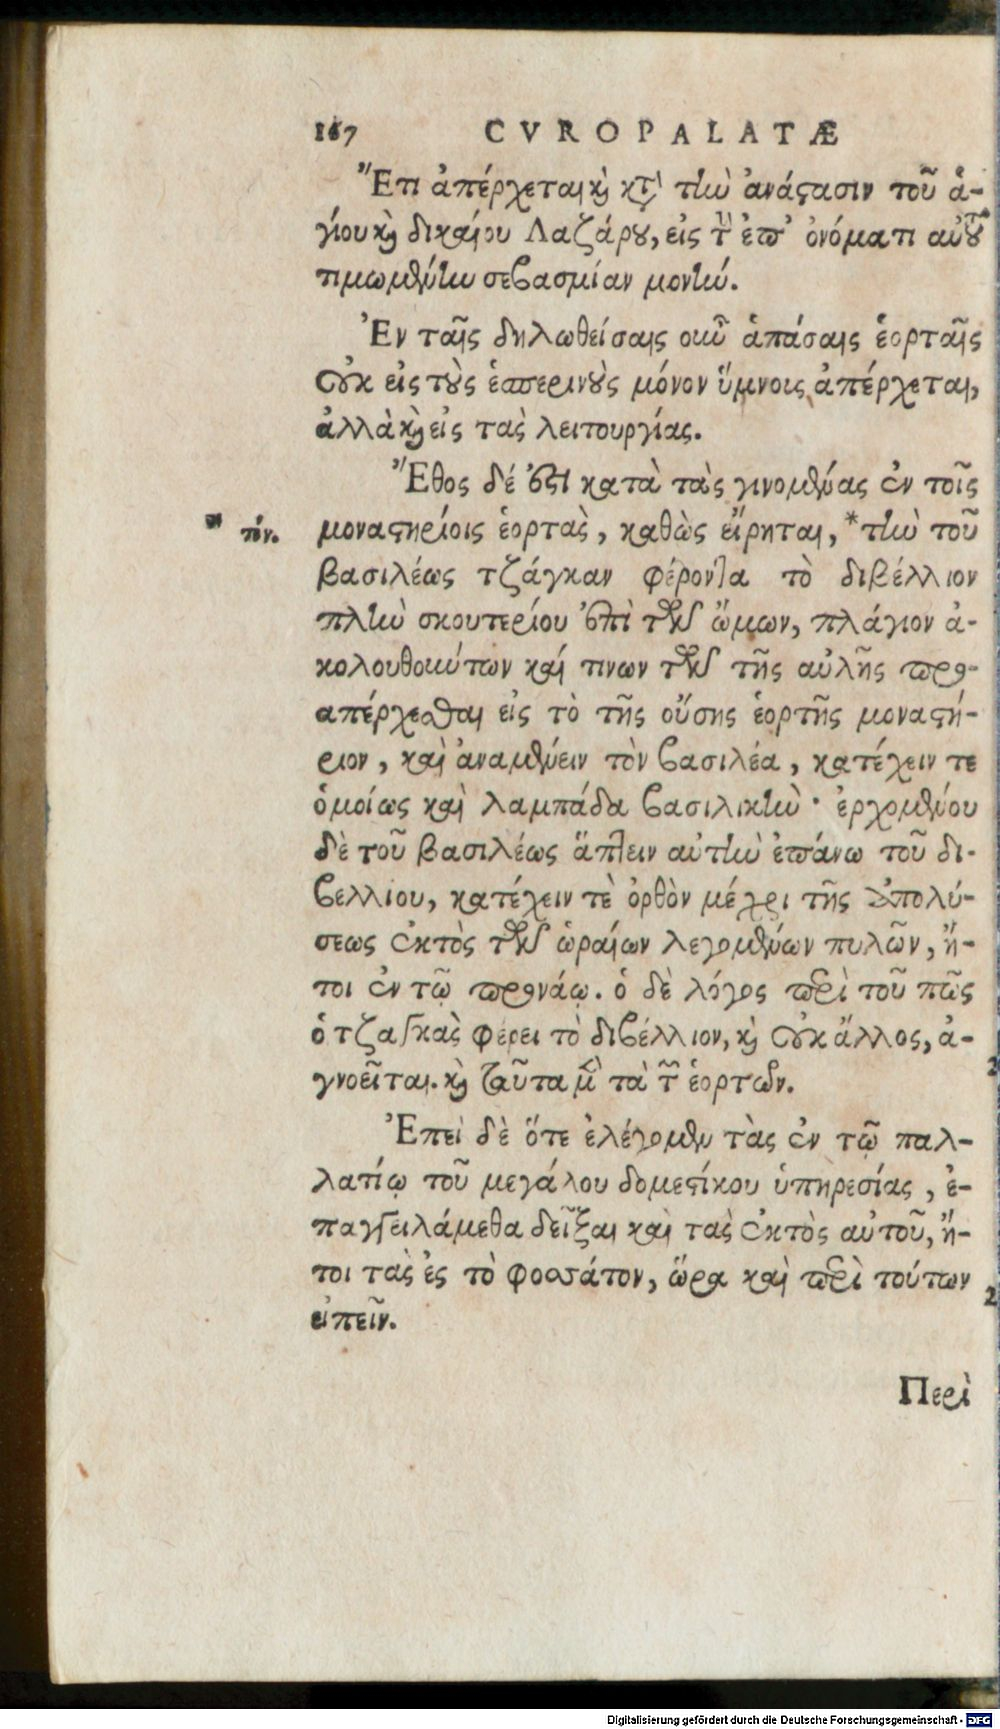 167 CVROPALATÆ
Ἔτι ἀπέρχεται καὶ κατὰ τὴν ἀνάστασιν τοῦ ἁ-
γίου καὶ δικαίου Λαζάρου, εἰς τὴν ἐπ' ὀνόματι αὐτοῦ
τιμωμένην σεβασμίαν μονήν.
Ἐν ταῖς δηλωθείσαις οὖν ἁπάσαις ἑορταῖς
οὐκ εἰς τοὺς ἑσπερινοὺς μόνον ὕμνοις ἀπέρχεται,
ἀλλὰ καὶ εἰς τὰς λειτουργίας.
Ἔθος δέ ἐστι κατὰ τὰς γινομένας ἐν τοῖς
τόν. μοναστηρίοις ἑορτὰς, καθὼς εἴρηται, *τὴν τοῦ
βασιλέως τζάγκαν φέροντα τὸ διβέλλιον
πλὴν σκουτερίου ἐπὶ τῶν ὤμων, πλάγιον ἀ-
κολουθούντων καί τινων τῶν τῆς αὐλῆς προ-
απέρχεσθαι εἰς τὸ τῆς οὔσης ἑορτῆς μοναστή-
ριον, καὶ ἀναμένειν τὸν βασιλέα, κατέχειν τε
ὁμοίως καὶ λαμπάδα βασιλικὴν· ἐρχομένου
δὲ τοῦ βασιλέως ἅπτειν αὐτὴν ἐπάνω τοῦ δι-
βελλίου, κατέχειν τὲ ὀρθὸν μέχρι τῆς ἀπολύ-
σεως ἐκτὸς τῶν ὡραίων λεγομένων πυλῶν, ἤ-
τοι ἐν τῷ προνάῳ. ὁ δὲ λόγος περὶ τοῦ πῶς
ὁ τζαγκὰς φέρει τὸ διβέλλιον, καὶ οὐκ ἄλλος, ἀ-
γνοεῖται. καὶ ταῦτα μὲν τὰ τῶν ἑορτῶν.
Ἐπεὶ δὲ ὅτε ἐλέγομεν τὰς ἐν τῷ παλ-
λατίῳ τοῦ μεγάλου δομεστίκου ὑπηρεσίας, ἐ-
παγγειλάμεθα δεῖξαι καὶ τὰς ἐκτὸς αὐτοῦ, ἤ-
τοι τὰς ἐς τὸ φοσσάτον, ὥρα καὶ περὶ τούτων
εἰπεῖν.
Περὶ
Digitalisierung gefördert durch die Deutsche Forschungsgemeinschaft - DFG